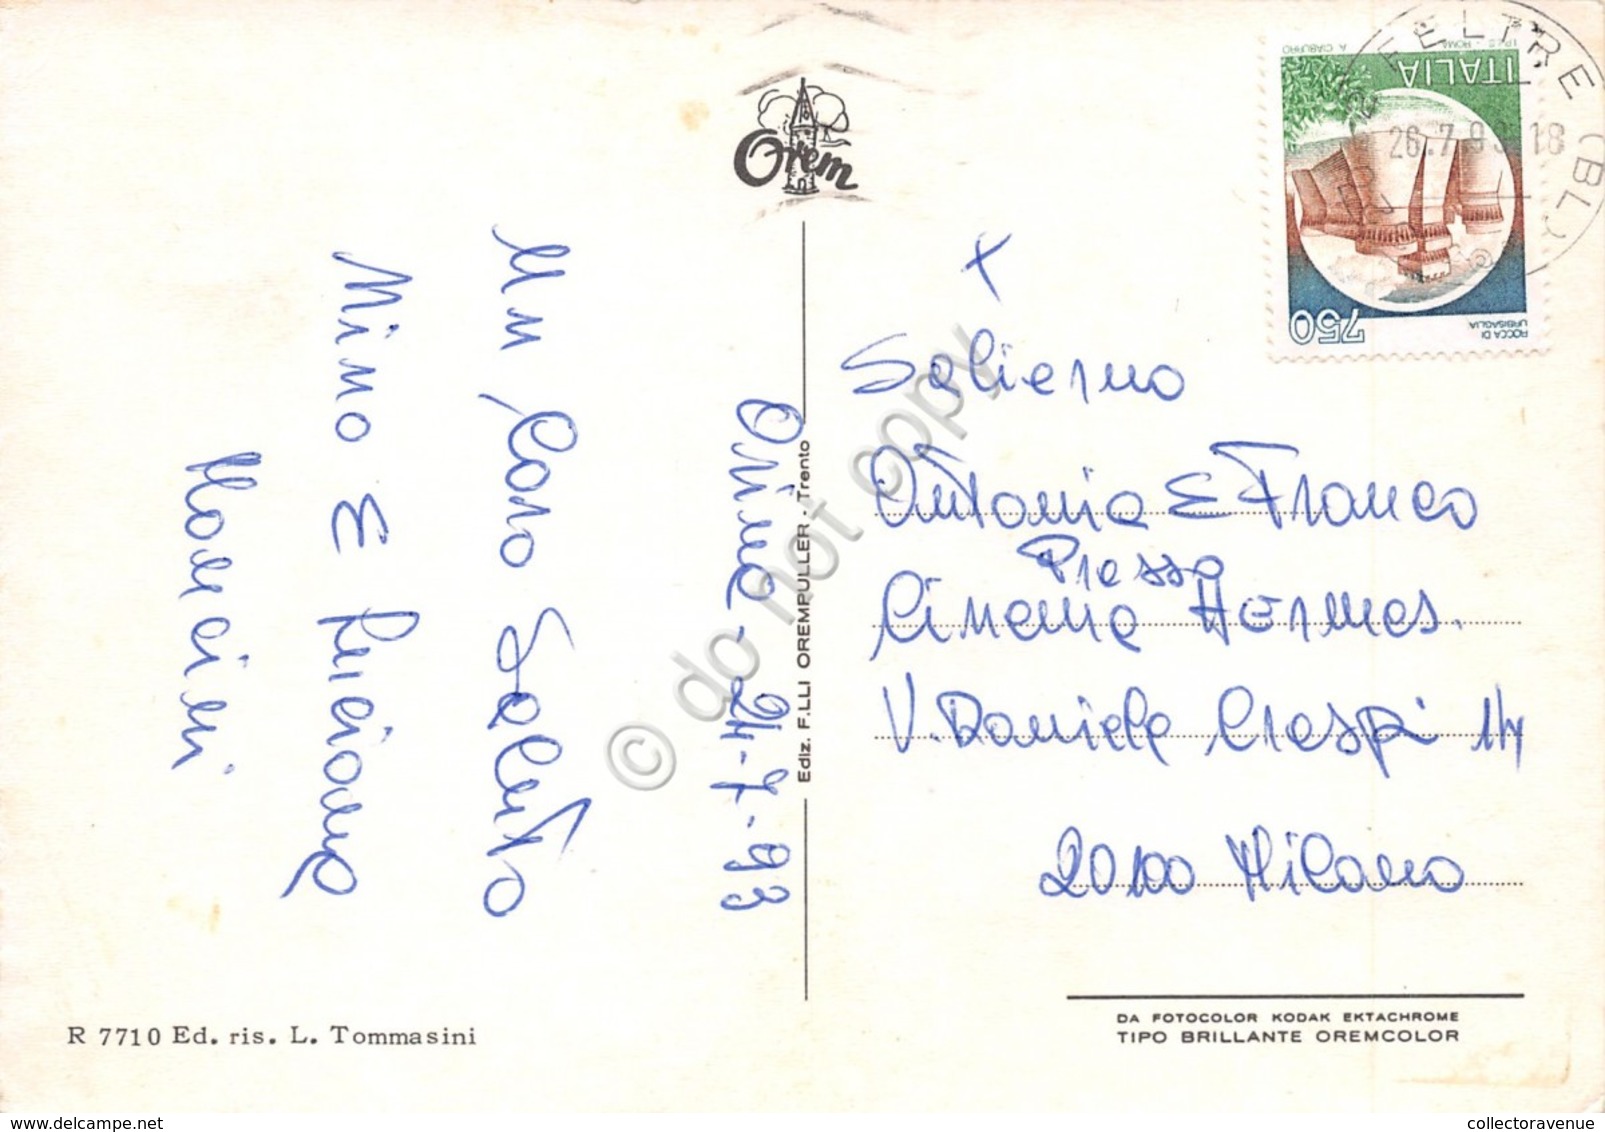 Orem
Un Caro Saluto
Mimo E Luciana
Mancini
24-7-93
Ediz. F.LLI OREMPULLER - Trento
x
Salierno
Antonia E Franco
Presso
Cinema Hermes.
V. Daniele Crespi 14
20100 Milano
FELTRE (BL)
26.7.93.18
ITALIA
I.P.Z.S. - ROMA
A. CIABURRO
750
ROCCA DI
URBISAGLIA
R 7710 Ed. ris. L. Tommasini
DA FOTOCOLOR KODAK EKTACHROME
TIPO BRILLANTE OREMCOLOR
© do not copy
collectoravenue.com